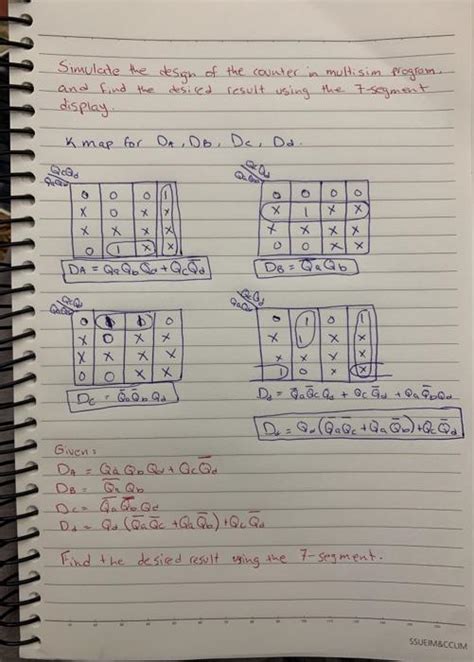 Simulate the design of the counter in multisim program,
and find the desired result using the 7-segment
display.
K map for DA, DB, Dc, Dd.
QcQd
QaQb
0 0 0 1
X 0 X X
X X X X
0 1 X X
DA = QaQbQd + QcQ̅d
QcQd
QaQb
0 0 0 0
X 1 X X
X X X X
0 0 X X
DB = Q̅aQb
QcQd
QaQb
0 0
X 0 X X
X X X X
0 0 X X
Dc = Q̅aQ̅bQd
QcQd
QaQb
0 1 0 1
X 1 X X
X X X X
1 0 X X
Dd = Q̅aQ̅cQd + QcQ̅d + QaQ̅bQd
Dd = Qd(Q̅aQ̅c + QaQ̅b) + QcQ̅d
Given:
DA = QaQbQd + QcQ̅d
DB = Q̅aQb
Dc = Q̅aQ̅bQd
Dd = Qd(Q̅aQ̅c + QaQ̅b) + QcQ̅d
Find the desired result using the 7-segment.
SSUEIM&CCLIM